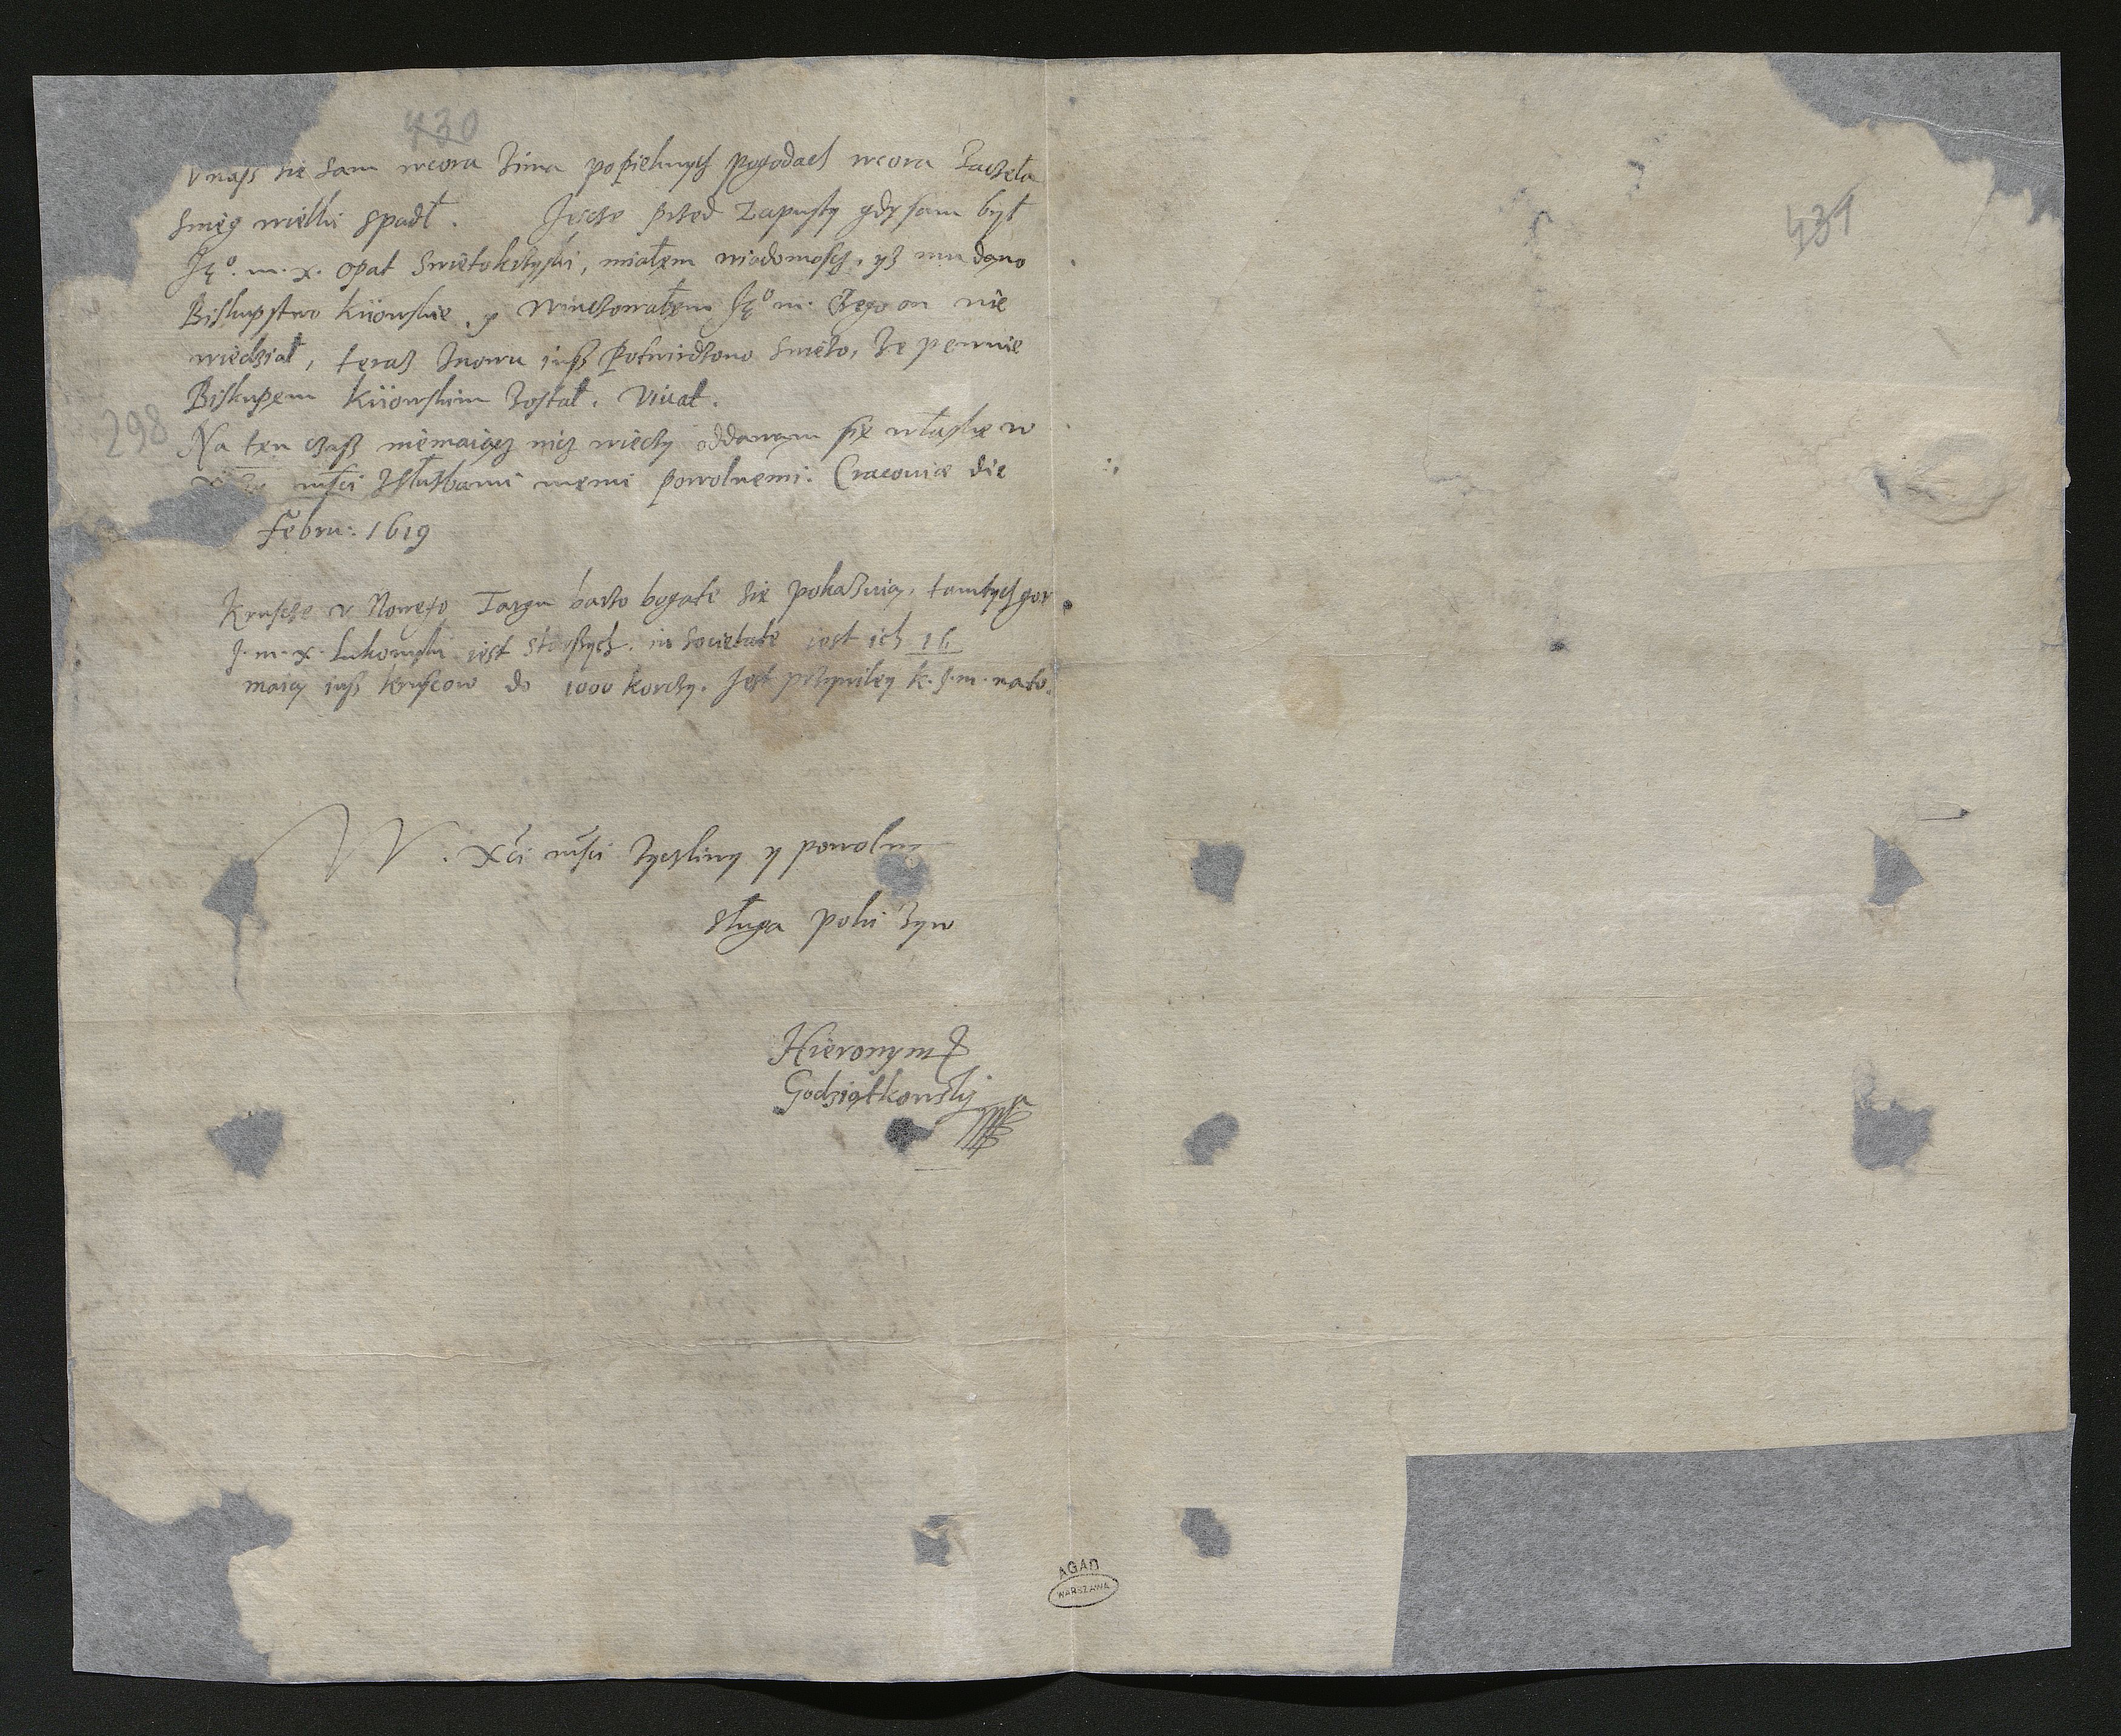 430
V nass sie sam wcora zima popieknych pogodach wcora zaczeła
snieg wielki spadł. Jescze przed Zapusty gdy sam był
Je⁰. m. x. opat Swietokrzyski, miałem wiadomoscz, ysz mu dano
Biskupstwo Kiiowskie, y winczowałem Je⁰ m. czego on nie
wiedział, teraz znowu iusz potwirdzono swieżo, że pewnie
Biskupem Kiiowskim został. Vivat.
298
Na ten czasz niemaiącz nicz wieczy oddawam się właskę w
mści zsłużbami memi powolnemi. Cracoviæ die
Febru: 1619
Kruscze v Nowego Targu barzo bogate sie pokazuią, tamtych gor
J. m. x. Lukomski iest starszych. in societate iest ich 16
maią iusz kruscow do 1000 korczy. Jest przywiley k. J. m. nato.
W. Xci mści życzliwy y powolny
sługa poki żyw
Hieronym9
Godziątkowskÿ
431
AGAD
WARSZAWA